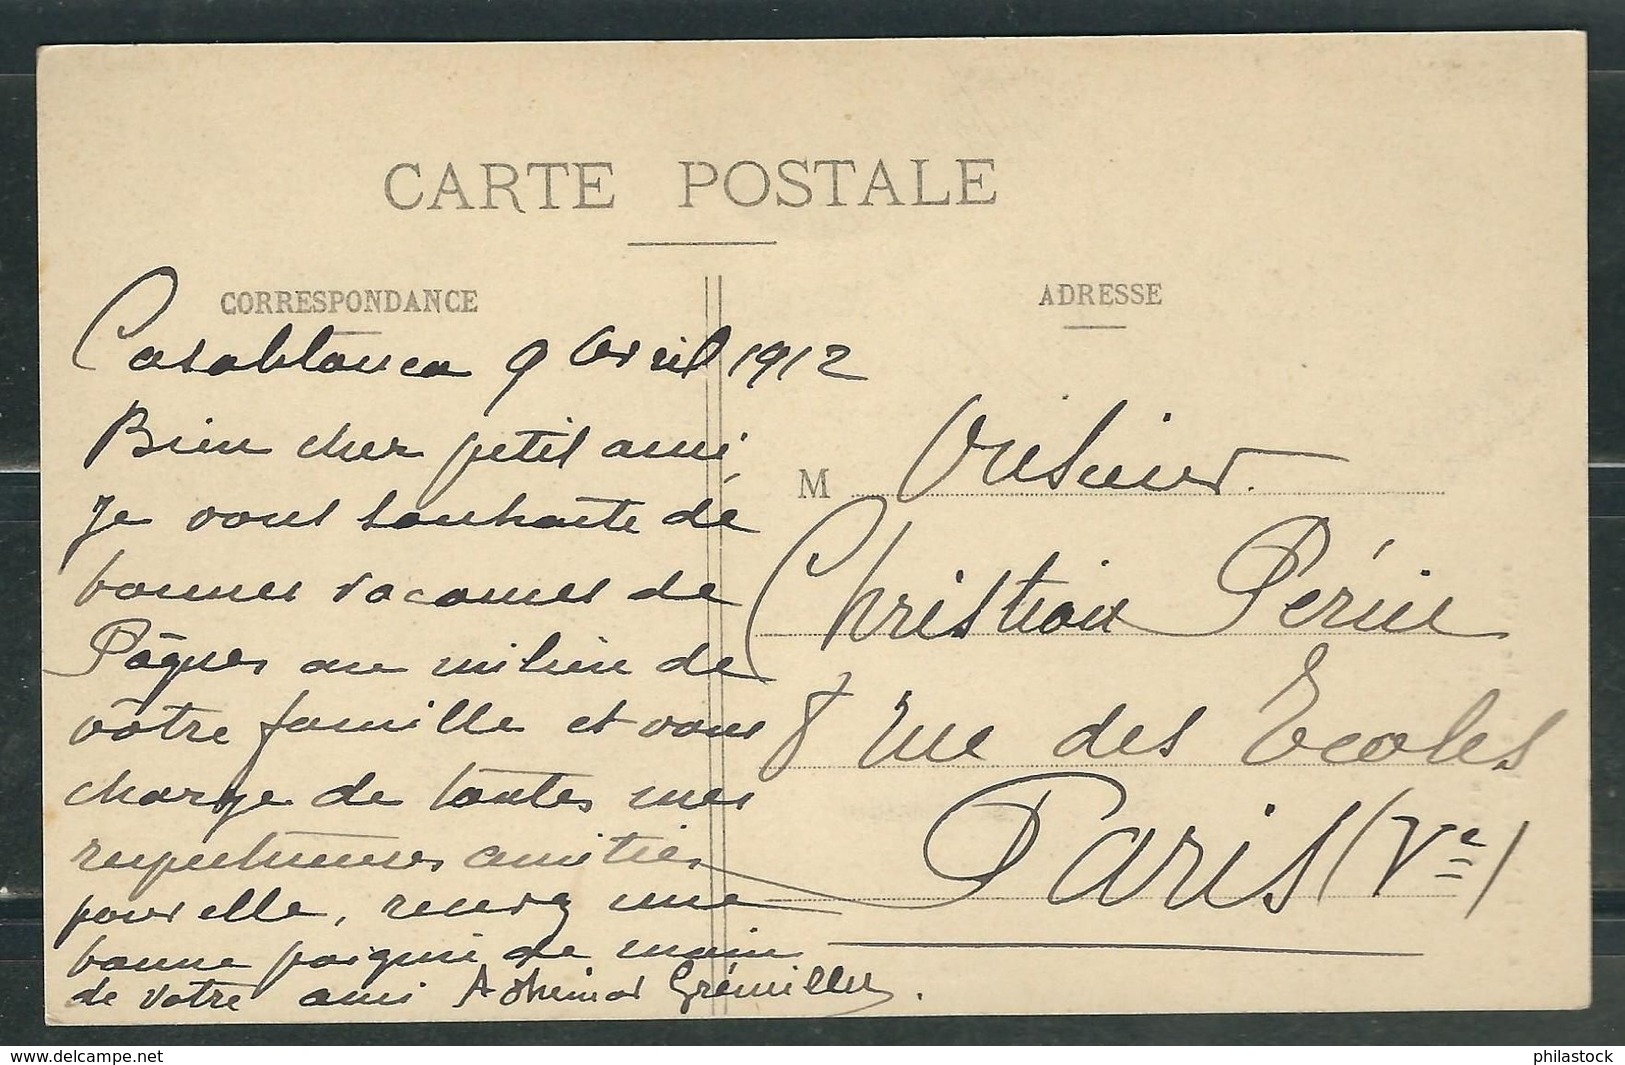 CARTE POSTALE
CORRESPONDANCE
Casablanca 9 Avril 1912
Bien cher petit ami
Je vous souhaite de
bonnes vacances de
Pâques au milieu de
vôtre famille et vous
charge de toutes mes
respectueuses amitiés
pour elle, recevez une
bonne poignée de main
de votre ami Adhémar Grémillet.
ADRESSE
M onsieur
Christian Périn
8 rue des Ecoles
Paris (Ve)
philastock